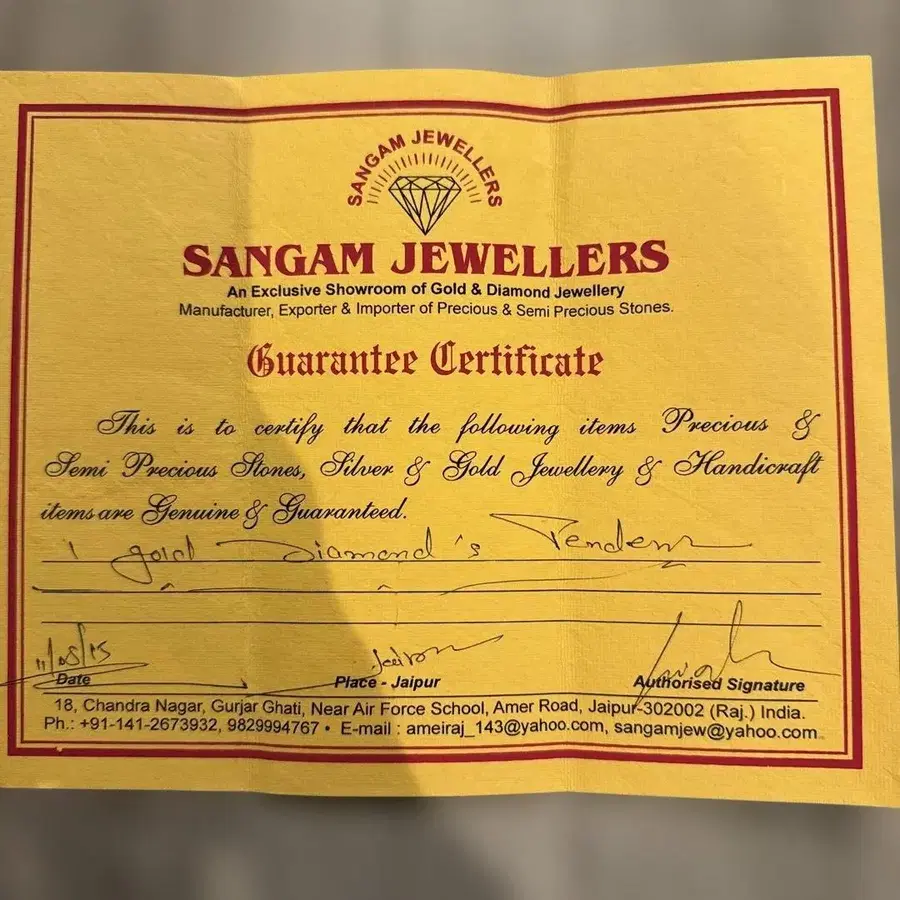 SANGAM JEWELLERS
SANGAM JEWELLERS
An Exclusive Showroom of Gold & Diamond Jewellery
Manufacturer, Exporter & Importer of Precious & Semi Precious Stones.
Guarantee Certificate
This is to certify that the following items Precious &
Semi Precious Stones, Silver & Gold Jewellery & Handicraft
items are Genuine & Guaranteed.
1 gold Diamond's
11/05/15
Date
Place - Jaipur
Authorised Signature
18, Chandra Nagar, Gurjar Ghati, Near Air Force School, Amer Road, Jaipur-302002 (Raj.) India.
Ph.: +91-141-2673932, 9829994767 • E-mail : ameiraj_143@yahoo.com, sangamjew@yahoo.com